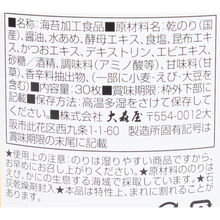 名称：海苔加工食品●原材料名：乾のり(国
産)、醤油、水あめ、酵母エキス、食塩、昆布エキ
ス、かつおエキス、デキストリン、えびエキス、
砂糖／酒精、調味料(アミノ酸等)、甘味料(甘
草)、香辛料抽出物、(一部に小麦・えび・大豆を
含む)●内容量：30枚●賞味期限：枠外下部に
記載●保存方法：高温多湿をさけて保存してく
ださい。●製造者：株式会社 大森屋 〒554-0012 大
阪市此花区西九条1-1-60 製造所固有記号は
賞味期限の末尾に記載
★使用上の注意：のりは湿りやすい商品ですから、
お早めにお召し上がりください。●原材料ののりは、
えび、かにの生息する海域で採取しています。●